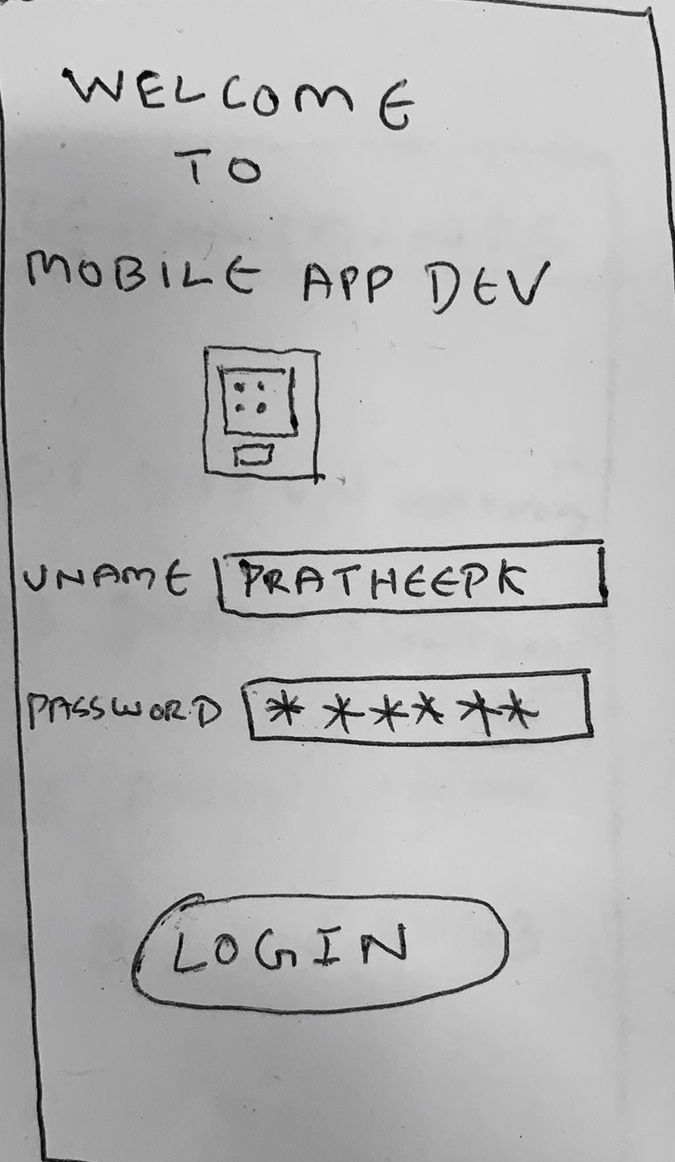 WELCOME
TO
MOBILE APP DEV
UNAME PRATHEEPK
PASSWORD ******
LOGIN